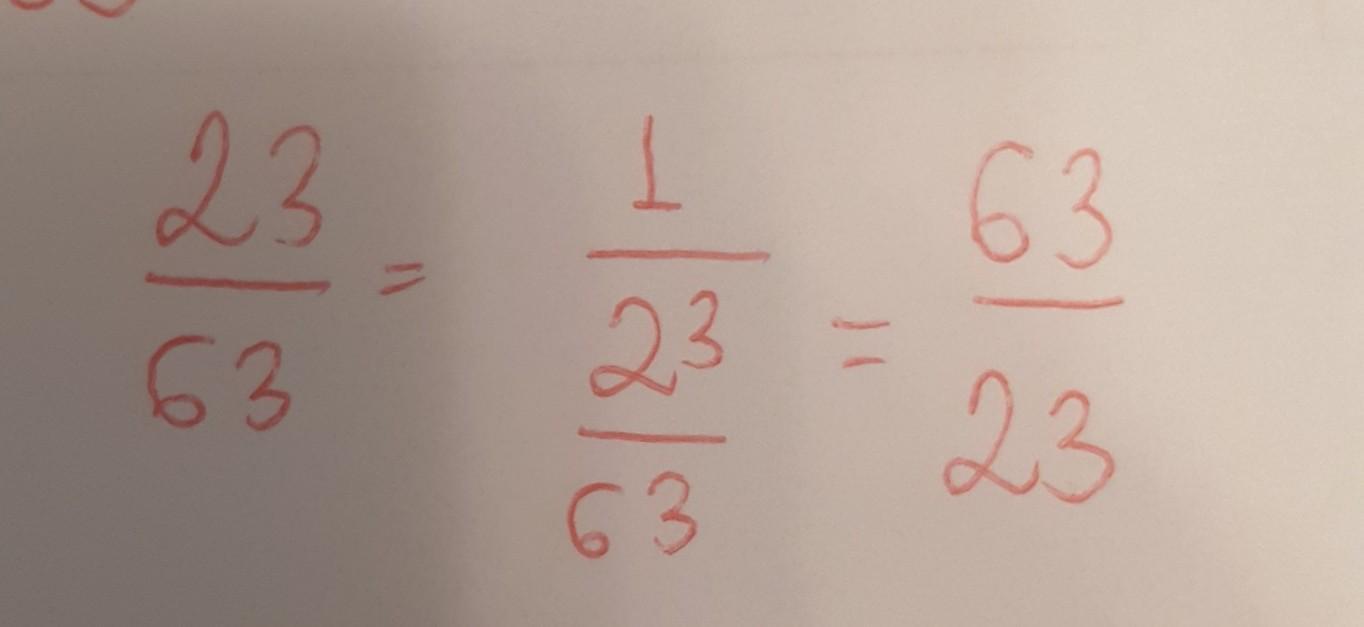 23/63 = 1/(23/63) = 63/23